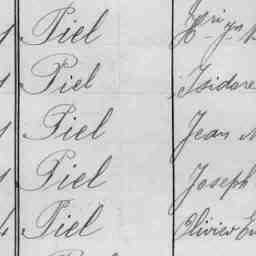 Piel
Piel Isidore
Piel Jean
Piel Joseph
Piel Olivier